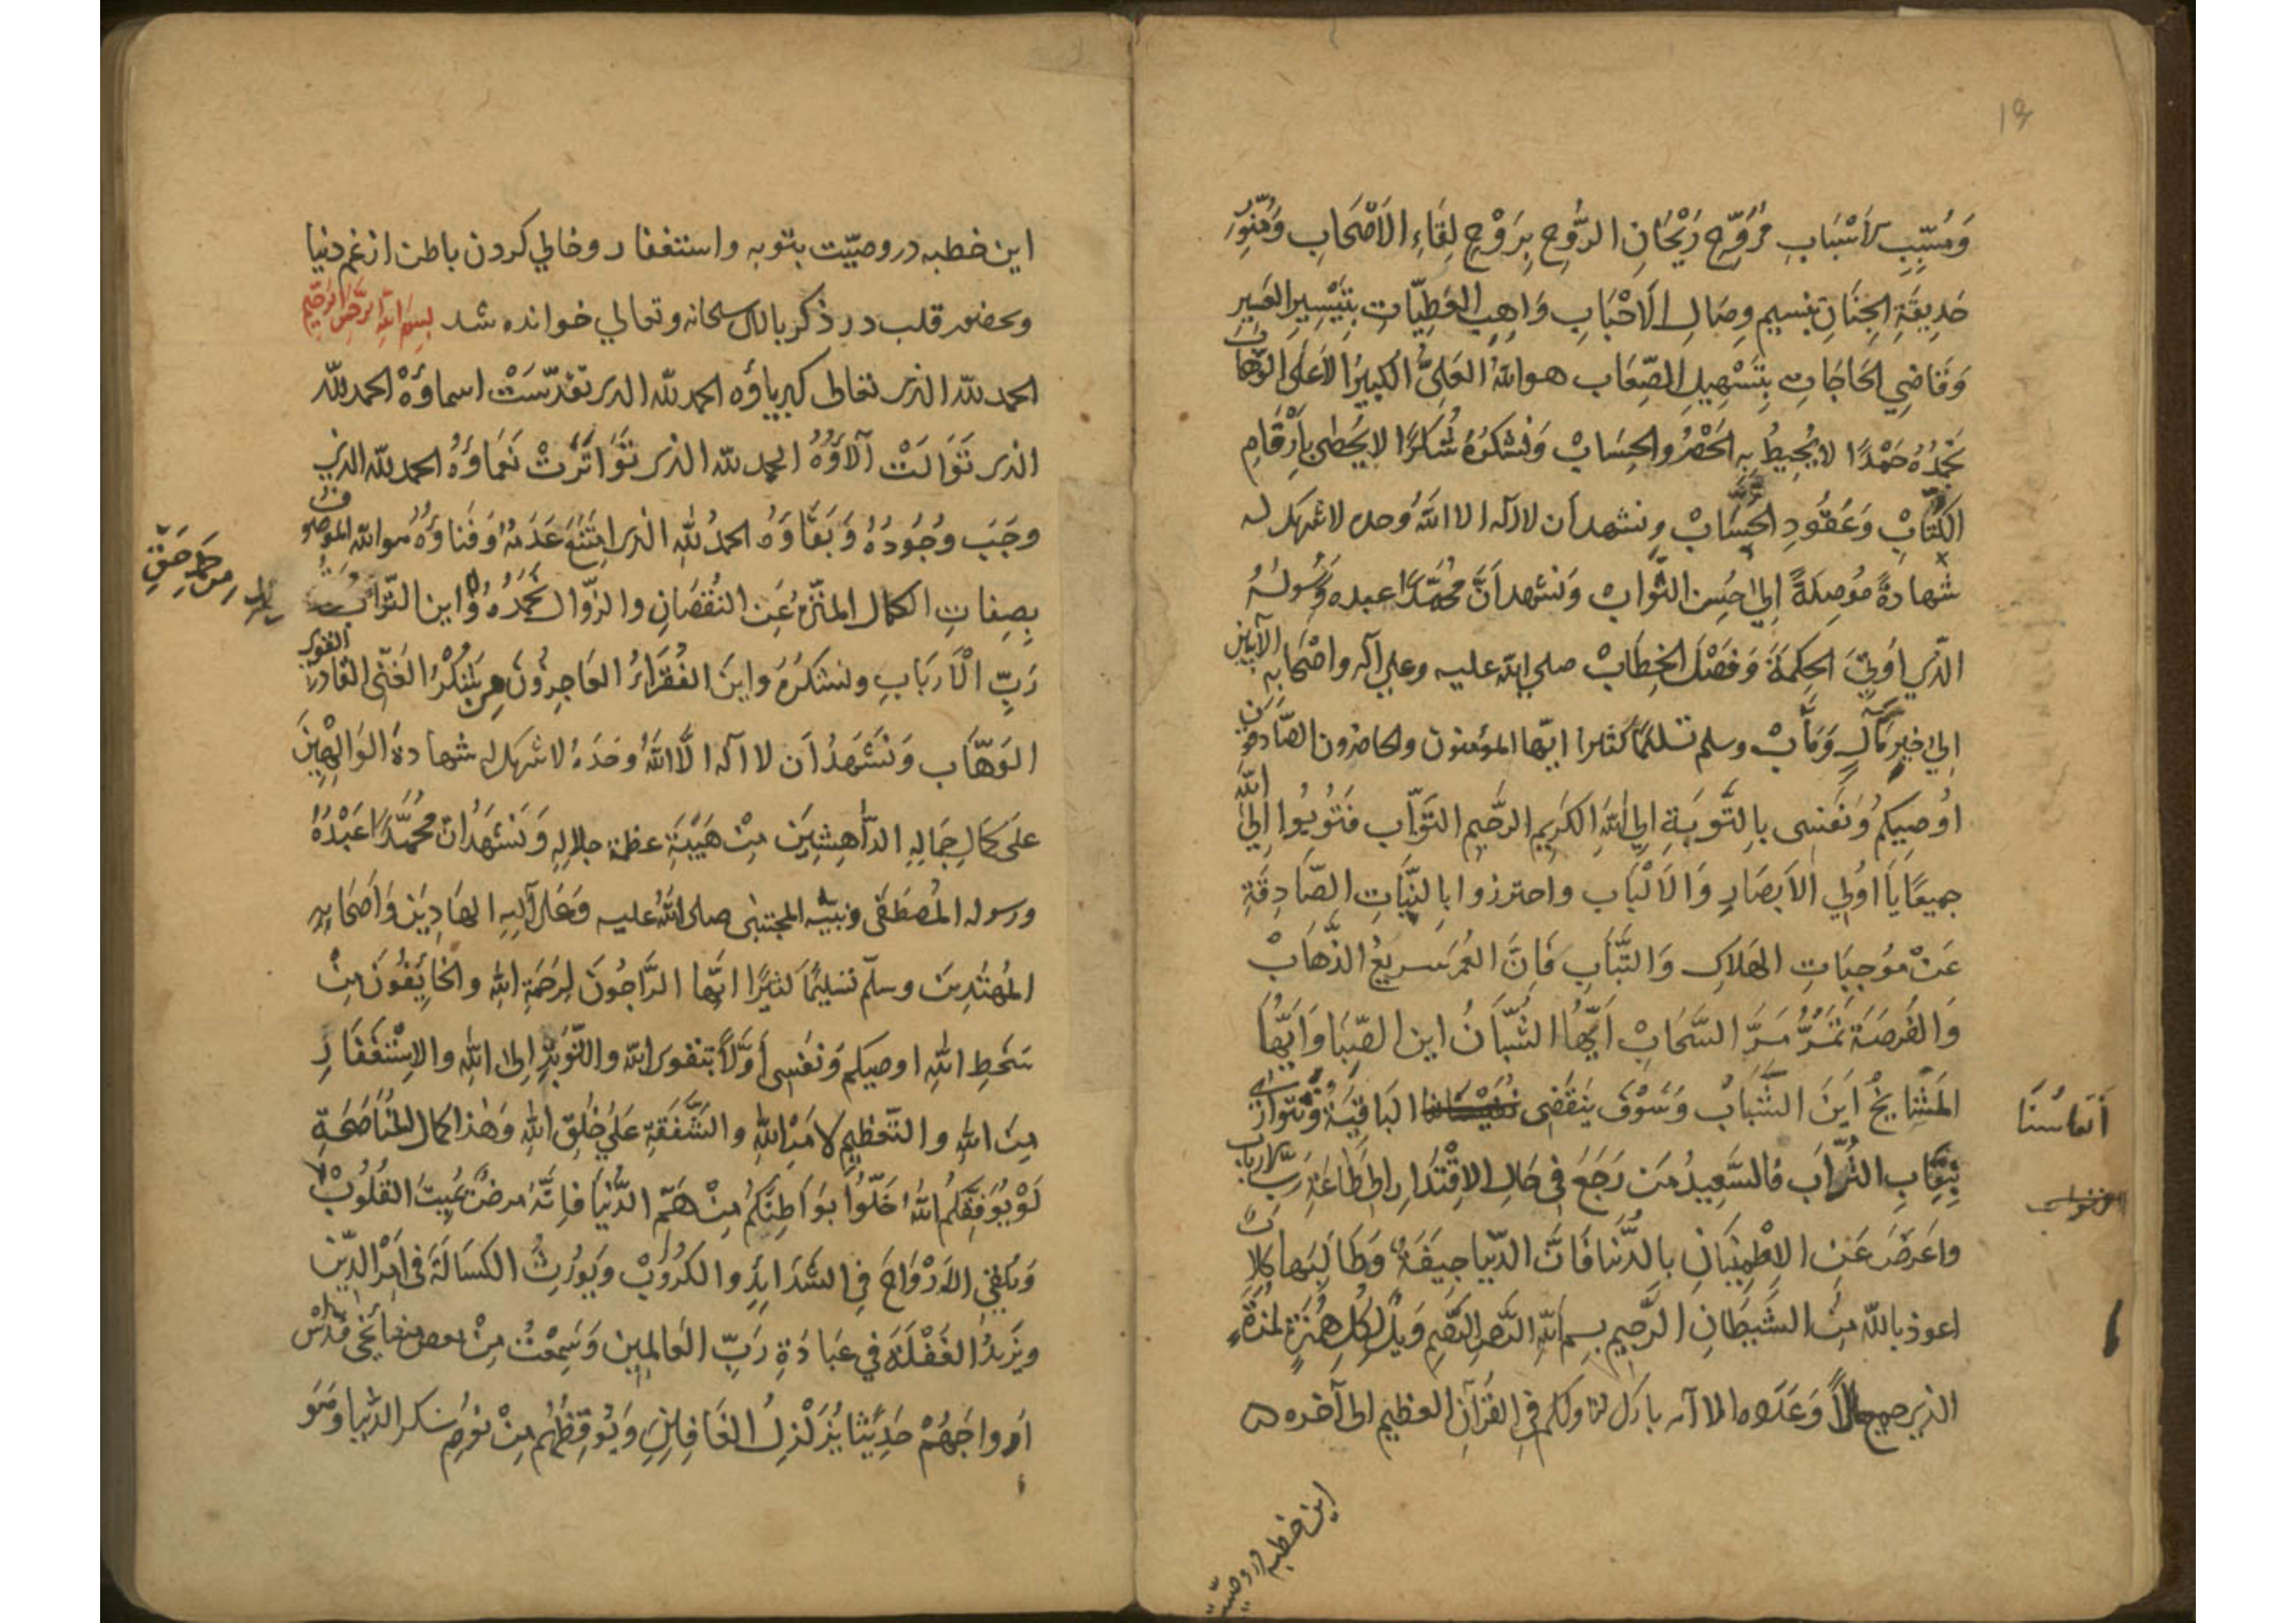 19
وَمُسَبِّبِ الأَسْبَابِ مُرَوِّحِ رَيْحَانِ الرُّوحِ بِرَوْحِ لِقَاءِ الأَصْحَابِ وَمُنَوِّرِ
حَدِيقَةِ الجِنَانِ بنسيم وِصَالِ الأَحْبَابِ وَاهِبِ العَطِيَّاتِ بِتَيْسِيرِ العَسِيرِ
وَقَاضِي الحَاجَاتِ بِتَسْهِيلِ الصِّعَابِ هو اللهُ العَلِيُّ الكَبِيرُ الأَعْلَى الوَهَّاب
نَحْمَدُهُ حَمْدًا لا يُحِيطُ بِهِ الحَصْرُ والحِسَابْ وَنَشْكُرُهُ شُكْرًا لا يُحْصَى بِأَرْقَامِ
الكُتَّابْ وَعُقُودِ الحُسَّابْ ونشهد أن لا اله الا اللهُ وحده لا شريك له
شهادةً مُوصِلَةً إلى حُسن الثَّواب وَنشهد اَنَّ مُحَمَّدًا عبده وَرَسُولُهُ
الذي اوتِيَ الحِكمَةَ وَفَصْلَ الخِطَابْ صلى الله عليه وعلى آله واصْحَابِه الآيبين
اِلى خيرِ مَآلٍ وَمَآبْ وسلم تسليمًا كثيرا ايّها المؤمنون والحاضرون الصَّادقون
اُوصِيكم وَنَفسى بِالتَّوبَةِ اِلى اللهِ الكَرِيمِ الرَّحِيمِ التَوَّاب فَتُوبُوا اِلَى الله
جميعًا يَا اُولِي الاَبصَارِ وَالاَلْبَاب واحترزوا بِالنِّيَّاتِ الصَّادِقَةِ
عَنْ مُوجِبَاتِ الهَلاكِ وَالتَّبَابِ فَاِنَّ العُمرَ سريعُ الذَّهَابْ
وَالفُرصَةَ تَمُرُّ مَرَّ السَّحَابْ اَيُّهَا الشُّبَّانُ اين الصِّبَا وَاَيُّهَا
المَشَايِخُ اَينَ الشَّبَابْ وَسَوْفَ يَنقَضِى البَاقِيَةُ وَنَتَوَارَى
اَنفاسُنَا
بِنِقَابِ التُّرَاب فَالسَّعِيدُ مَن رَجَعَ فِى حَالِ الاِقْتِدَارِ اِلى طَاعَةِ رَبِّ الارباب
واَعرَضَ عَنِ الاِطْمِينَانِ بِالدُّنيَا فَاِنَّ الدّنيا جِيفَةٌ وَطَالِبُهَا كِلابٌ
اعوذ بالله مِنَ الشَّيطَانِ الرَّجِيم بِسمِ اللهِ الرَّحمنِ الرَّحِيمِ وَيلٌ لِكُلِّ هُمَزَةٍ لُمَزَةٍ
الذى جمع مالاً وَعَدَّدَه الا آيه بارك لنا ولكم فِى القُرآنِ العظيم الى آخره
اين خطبه در وصيّت
اين خطبه در وصيّت بتوبه واستغفار وخالي كردن باطن از غم دنيا
وبحضور قلب در ذكر بالله سبحانه وتعالي خوانده شد بِسمِ اللهِ الرَّحمنِ الرَّحِيمِ
الحمد لله الذى تعالى كبرياؤه الحمد لله الذى تقدّسَتْ اسماؤهْ الحمد لله
الذى تَوَالَتْ آلاَؤُهُ الحمد لله الذى تَوَاتَرَتْ نَعمَاؤهُ الحمد لله الذى
وجَبَ وجُودُهُ وَبَقَاؤهُ الحمدُ للهِ الذى امتَنَعَ عَدَمُهُ وَفَناؤهُ هو الله الموصوف
بِصِفاتِ الكمال المنَزَّهُ عَنِ النُّقصَانِ والزّوَال نَحمَدُهُ وَاين التّراب
مِن حَمدِ حَقِّ
رَبِّ الْاَربَابِ ونشكرُهُ واينَ الفُقَرَاءُ العَاجِزُونَ مِن شُكْرِ الغَنِّى القَادرِ القوى
الوَهَّاب وَنَشهَدُ اَن لا اله الَّا اللهُ وحَدَهُ لا شريك له شهادةَ الوَالِهِينَ
عَلَى كمَالِ جَمَالِهِ الدَّاهِشِينَ مِنْ هَيبَةِ عظمة جلالِهِ وَنَشهَدُ انّ مُحَمَّدًا عَبْدُهُ
ورسوله المُصطَفَى ونبيّه المجتبَى صلى اللهُ عليه وَعَلى آلِهِ الهَادِينَ وَاَصحَابِهِ
المُهتَدِينَ وسلّم تسليمًا كثيرًا ايّها الرَّاجُونَ لِرَحمَةِ اللهِ والخَايِفُونَ مِنْ
سَخَطِ اللهِ اوصيكم وَنَفسِى اَوَّلاً بتقوى الله والتّوبَةِ اِلى اللهِ والاِسْتغفَارِ
مِنَ اللهِ والتّعظِيمِ لاَمرِ اللهِ والشَّفَقَةِ عَلى خَلقِ اللهِ وَهٰذا كمال المُنَاصَحَةِ
لَوْ يُوَفِّقُكُمُ اللهُ خَلّوُا بَوَاطِنَكُم مِنْ هَمِّ الدُّنيَا فاِنَّهُ مرضٌ يُمِيتُ القُلُوبْ
وَيُلقِى الاَرْوَاحَ فِى الشّدَايدِ والكُرُوبْ وَيُورِثُ الكَسَالَةَ فى اَمرِ الدّين
ويَزيدُ الغَفْلَةَ فِي عِبَادَةِ رَبِّ العَالَمِين وَسَمِعْتُ مِنْ بعض مشايخى قُدِّسَ
اَرواحُهُمْ حَدِيثًا يُزَلْزِلُ الغَافِلِينَ وَيُوقِظُهُم مِنْ نَومِ سكر الدّنيا وَهُوَ